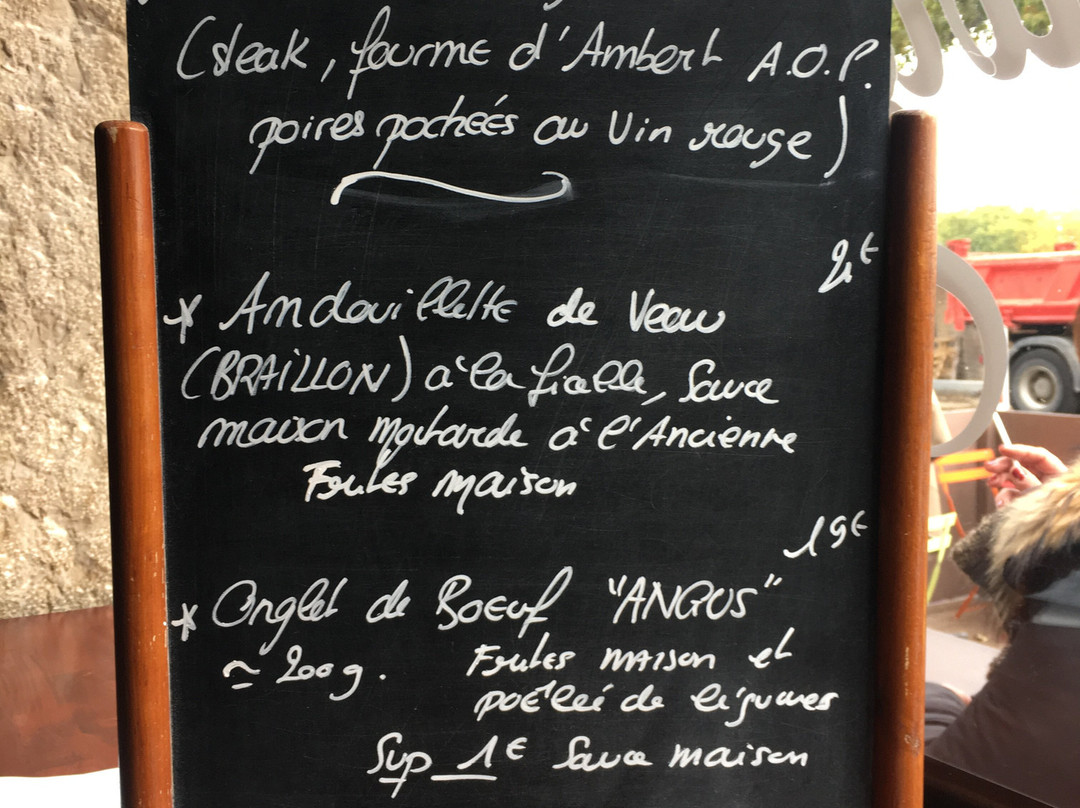 (steak, fourme d'Ambert A.O.P.
poires pochées au Vin rouge)
21€
* Andouillette de Veau
(BRAILLON) à la ficelle, Sauce
maison Moutarde à l'Ancienne
Frites maison
19€
* Onglet de Boeuf "ANGUS"
≃ 200g. Frites maison et
poêlée de légumes
Sup 1€ Sauce maison